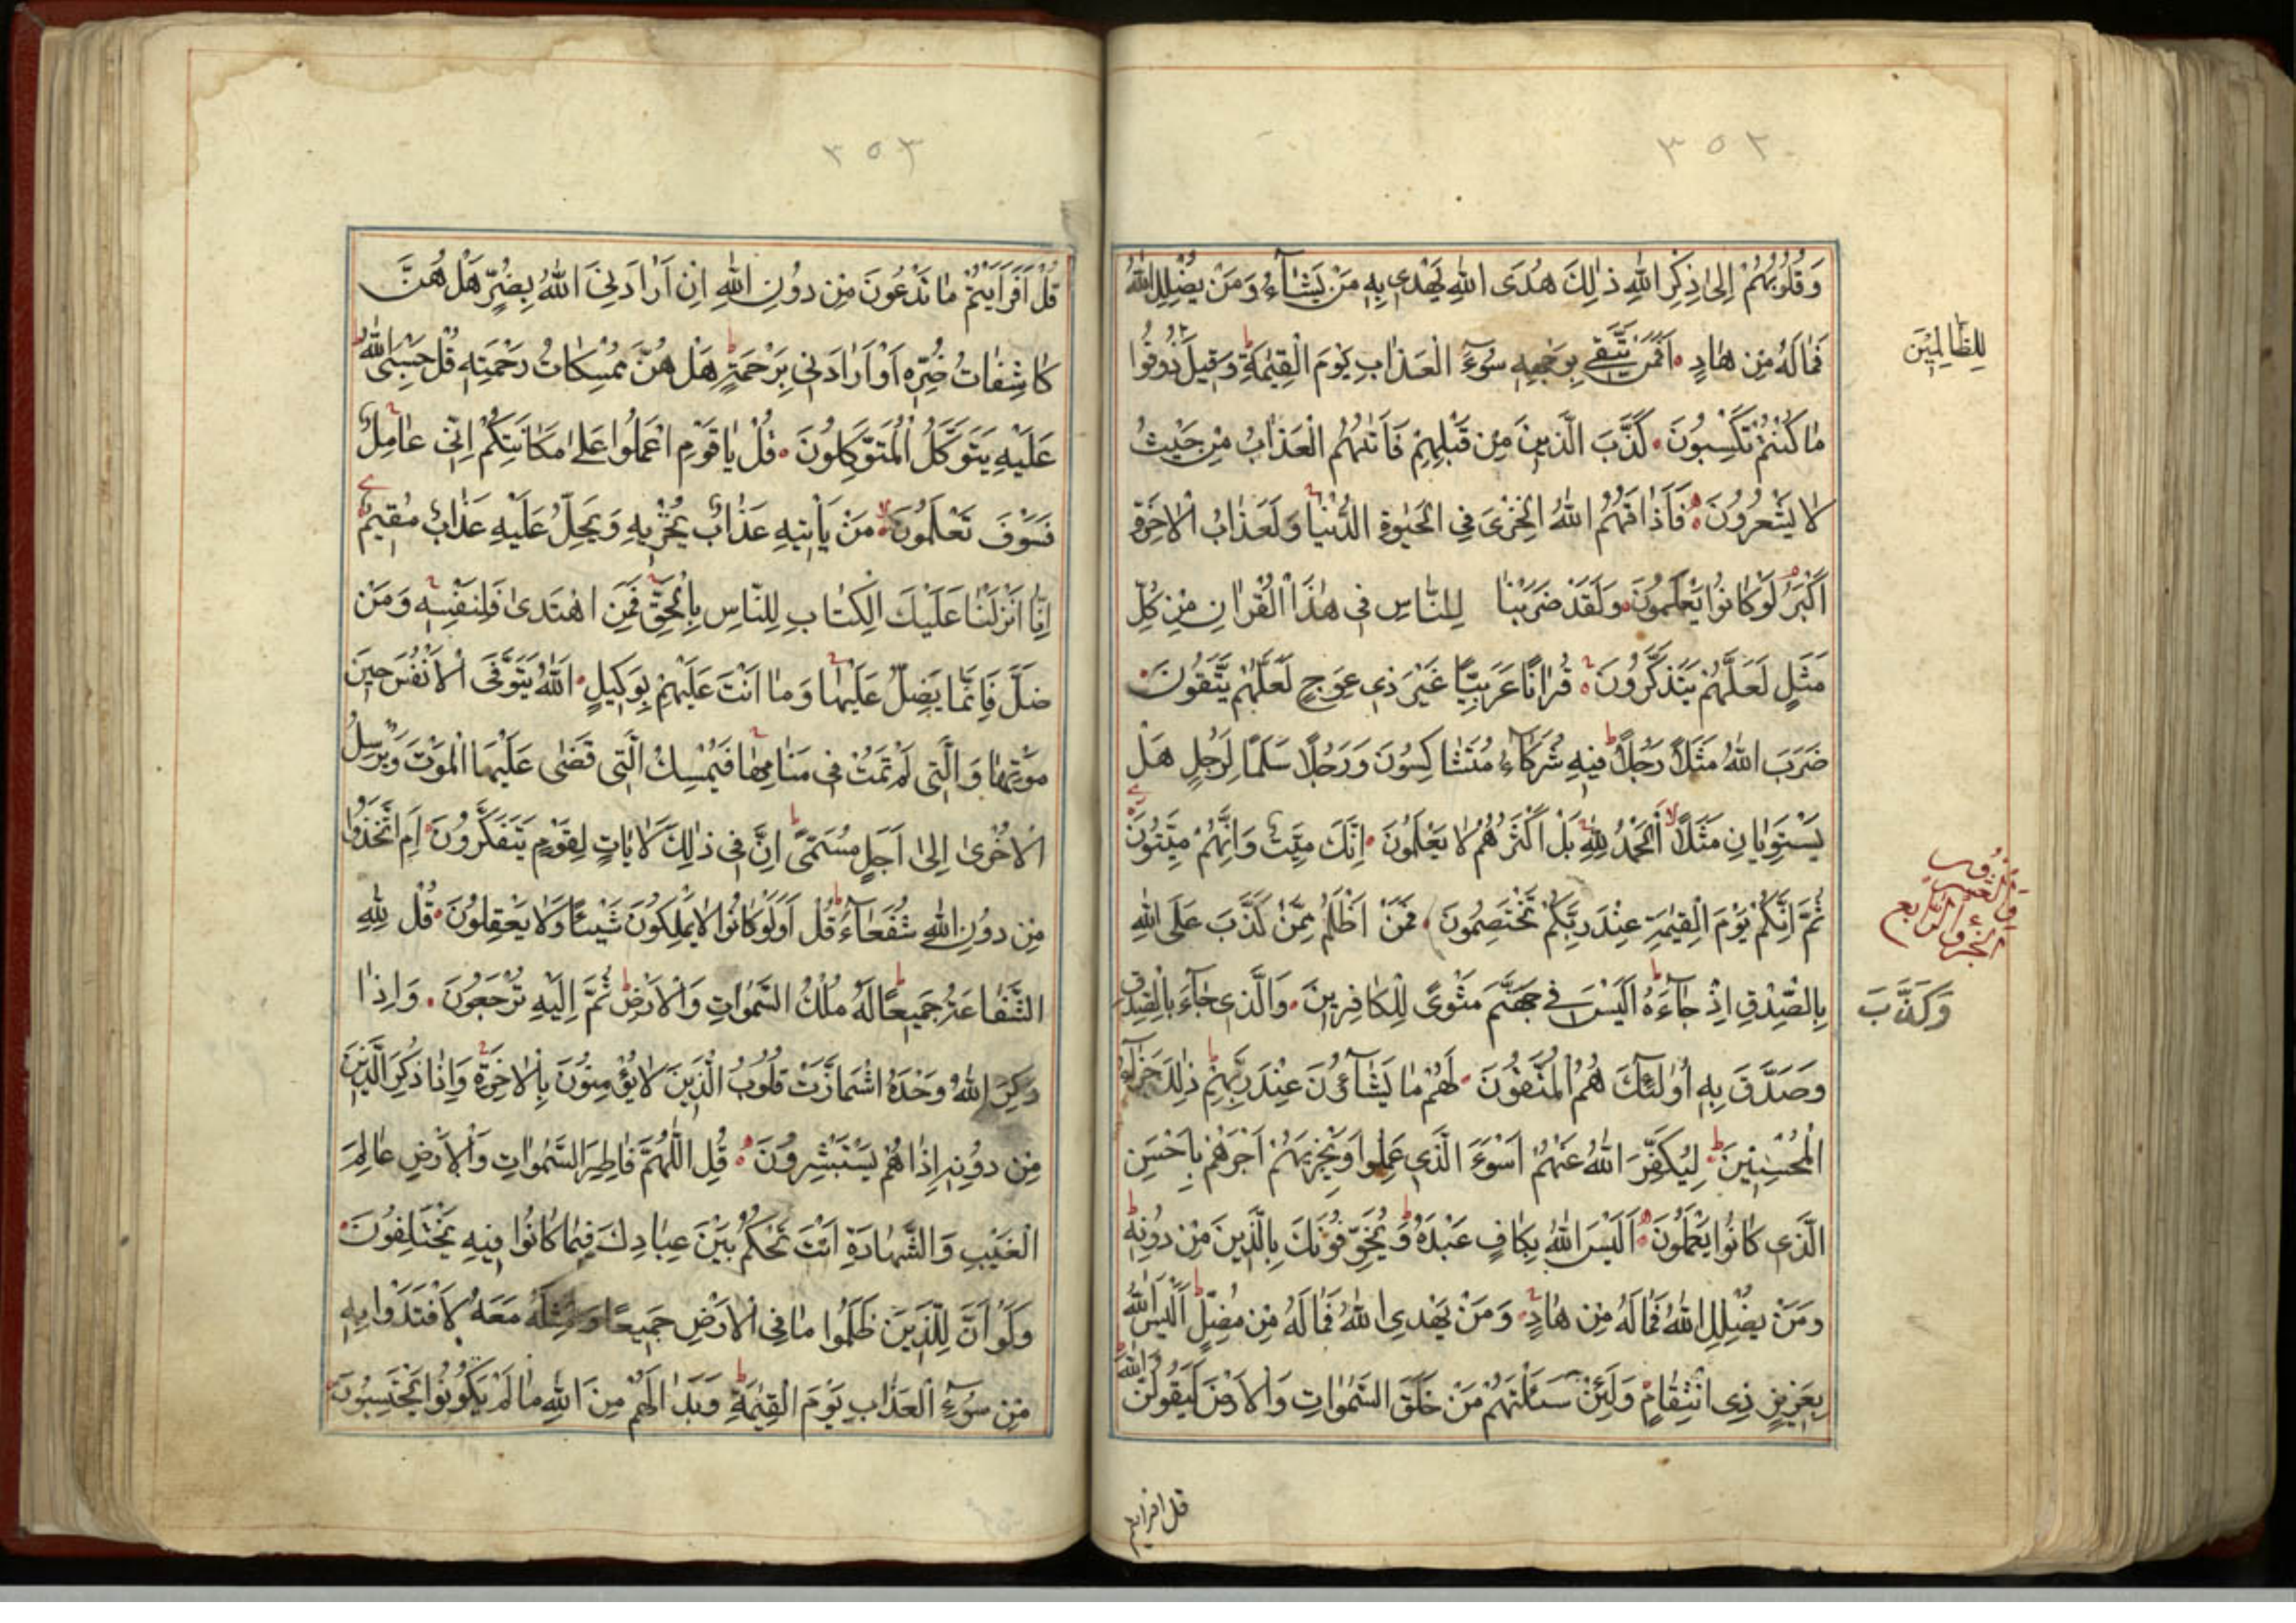 ٣٥٢
وَقُلُوبُهُمْ اِلىٰ ذِكْرِ اللهِ ذٰلِكَ هُدَى اللهِ يَهْدِى بِهِ مَنْ يَشَآءُ وَمَنْ يُضْلِلِ اللهُ
فَمَالَهُ مِنْ هَادٍ اَفَمَنْ يَتَّقِى بِوَجْهِهِ سُوۤءَ الْعَذَابِ يَوْمَ الْقِيٰمَةِ وَقِيلَ ذُوقُوا
لِلظَّالِمِينَ
مَا كُنْتُمْ تَكْسِبُونَ كَذَّبَ الَّذِينَ مِنْ قَبْلِهِمْ فَاَتٰهُمُ الْعَذَابُ مِنْ حَيْثُ
لَا يَشْعُرُونَ فَاَذَاقَهُمُ اللهُ الْخِزْىَ فِى الْحَيٰوةِ الدُّنْيَا وَلَعَذَابُ الْاٰخِرَةِ
اَكْبَرُ لَوْ كَانُوا يَعْلَمُونَ وَلَقَدْ ضَرَبْنَا لِلنَّاسِ فِى هٰذَا الْقُرْاٰنِ مِنْ كُلِّ
مَثَلٍ لَعَلَّهُمْ يَتَذَكَّرُونَ قُرْاٰنًا عَرَبِيًّا غَيْرَ ذِى عِوَجٍ لَعَلَّهُمْ يَتَّقُونَ
ضَرَبَ اللهُ مَثَلًا رَجُلًا فِيهِ شُرَكَآءُ مُتَشَاكِسُونَ وَرَجُلًا سَلَمًا لِرَجُلٍ هَلْ
يَسْتَوِيَانِ مَثَلًا اَلْحَمْدُ لِلّٰهِ بَلْ اَكْثَرُهُمْ لَا يَعْلَمُونَ اِنَّكَ مَيِّتٌ وَاِنَّهُمْ مَيِّتُونَ
ثُمَّ اِنَّكُمْ يَوْمَ الْقِيٰمَةِ عِنْدَ رَبِّكُمْ تَخْتَصِمُونَ فَمَنْ اَظْلَمُ مِمَّنْ كَذَبَ عَلَى اللهِ
الجزؤ الرابع والعشرون
بِالصِّدْقِ اِذْ جَآءَهُ اَلَيْسَ فِى جَهَنَّمَ مَثْوًى لِلْكَافِرِينَ وَالَّذِى جَآءَ بِالصِّدْقِ
وَكَذَّبَ
وَصَدَّقَ بِهِ اُولٰۤئِكَ هُمُ الْمُتَّقُونَ لَهُمْ مَا يَشَآؤُنَ عِنْدَ رَبِّهِمْ ذٰلِكَ جَزَآءُ
الْمُحْسِنِينَ لِيُكَفِّرَ اللهُ عَنْهُمْ اَسْوَءَ الَّذِى عَمِلُوا وَيَجْزِيَهُمْ اَجْرَهُمْ بِاَحْسَنِ
الَّذِى كَانُوا يَعْمَلُونَ اَلَيْسَ اللهُ بِكَافٍ عَبْدَهُ وَيُخَوِّفُونَكَ بِالَّذِينَ مِنْ دُونِهِ
وَمَنْ يُضْلِلِ اللهُ فَمَالَهُ مِنْ هَادٍ وَمَنْ يَهْدِى اللهُ فَمَالَهُ مِنْ مُضِلٍّ اَلَيْسَ اللهُ
بِعَزِيزٍ ذِى انْتِقَامٍ وَلَئِنْ سَئَلْتَهُمْ مَنْ خَلَقَ السَّمٰوَاتِ وَالْاَرْضَ لَيَقُولُنَّ اللهُ
قل افرايتم
٣٥٣
قُلْ اَفَرَاَيْتُمْ مَا تَدْعُونَ مِنْ دُونِ اللهِ اِنْ اَرَادَنِىَ اللهُ بِضُرٍّ هَلْ هُنَّ
كَاشِفَاتُ ضُرِّهِ اَوْ اَرَادَنِى بِرَحْمَةٍ هَلْ هُنَّ مُمْسِكَاتُ رَحْمَتِهِ قُلْ حَسْبِىَ اللهُ
عَلَيْهِ يَتَوَكَّلُ الْمُتَوَكِّلُونَ قُلْ يَا قَوْمِ اعْمَلُوا عَلىٰ مَكَانَتِكُمْ اِنِّى عَامِلٌ
فَسَوْفَ تَعْلَمُونَ مَنْ يَاْتِيهِ عَذَابٌ يُخْزِيهِ وَيَحِلُّ عَلَيْهِ عَذَابٌ مُقِيمٌ
اِنَّا اَنْزَلْنَا عَلَيْكَ الْكِتَابَ لِلنَّاسِ بِالْحَقِّ فَمَنِ اهْتَدىٰ فَلِنَفْسِهِ وَمَنْ
ضَلَّ فَاِنَّمَا يَضِلُّ عَلَيْهَا وَمَا اَنْتَ عَلَيْهِمْ بِوَكِيلٍ اَللهُ يَتَوَفَّى الْاَنْفُسَ حِينَ
مَوْتِهَا وَالَّتِى لَمْ تَمُتْ فِى مَنَامِهَا فَيُمْسِكُ الَّتِى قَضٰى عَلَيْهَا الْمَوْتَ وَيُرْسِلُ
الْاُخْرىٰ اِلىٰ اَجَلٍ مُسَمًّى اِنَّ فِى ذٰلِكَ لَاٰيَاتٍ لِقَوْمٍ يَتَفَكَّرُونَ اَمِ اتَّخَذُوا
مِنْ دُونِ اللهِ شُفَعَآءَ قُلْ اَوَلَوْ كَانُوا لَا يَمْلِكُونَ شَيْئًا وَلَا يَعْقِلُونَ قُلْ لِلّٰهِ
الشَّفَاعَةُ جَمِيعًا لَهُ مُلْكُ السَّمٰوَاتِ وَالْاَرْضِ ثُمَّ اِلَيْهِ تُرْجَعُونَ وَاِذَا
ذُكِرَ اللهُ وَحْدَهُ اشْمَاَزَّتْ قُلُوبُ الَّذِينَ لَا يُؤْمِنُونَ بِالْاٰخِرَةِ وَاِذَا ذُكِرَ الَّذِينَ
مِنْ دُونِهِ اِذَا هُمْ يَسْتَبْشِرُونَ قُلِ اللّٰهُمَّ فَاطِرَ السَّمٰوَاتِ وَالْاَرْضِ عَالِمَ
الْغَيْبِ وَالشَّهَادَةِ اَنْتَ تَحْكُمُ بَيْنَ عِبَادِكَ فِيمَا كَانُوا فِيهِ يَخْتَلِفُونَ
وَلَوْ اَنَّ لِلَّذِينَ ظَلَمُوا مَا فِى الْاَرْضِ جَمِيعًا وَمِثْلَهُ مَعَهُ لَافْتَدَوْا بِهِ
مِنْ سُوۤءِ الْعَذَابِ يَوْمَ الْقِيٰمَةِ وَبَدَا لَهُمْ مِنَ اللهِ مَا لَمْ يَكُونُوا يَحْتَسِبُونَ